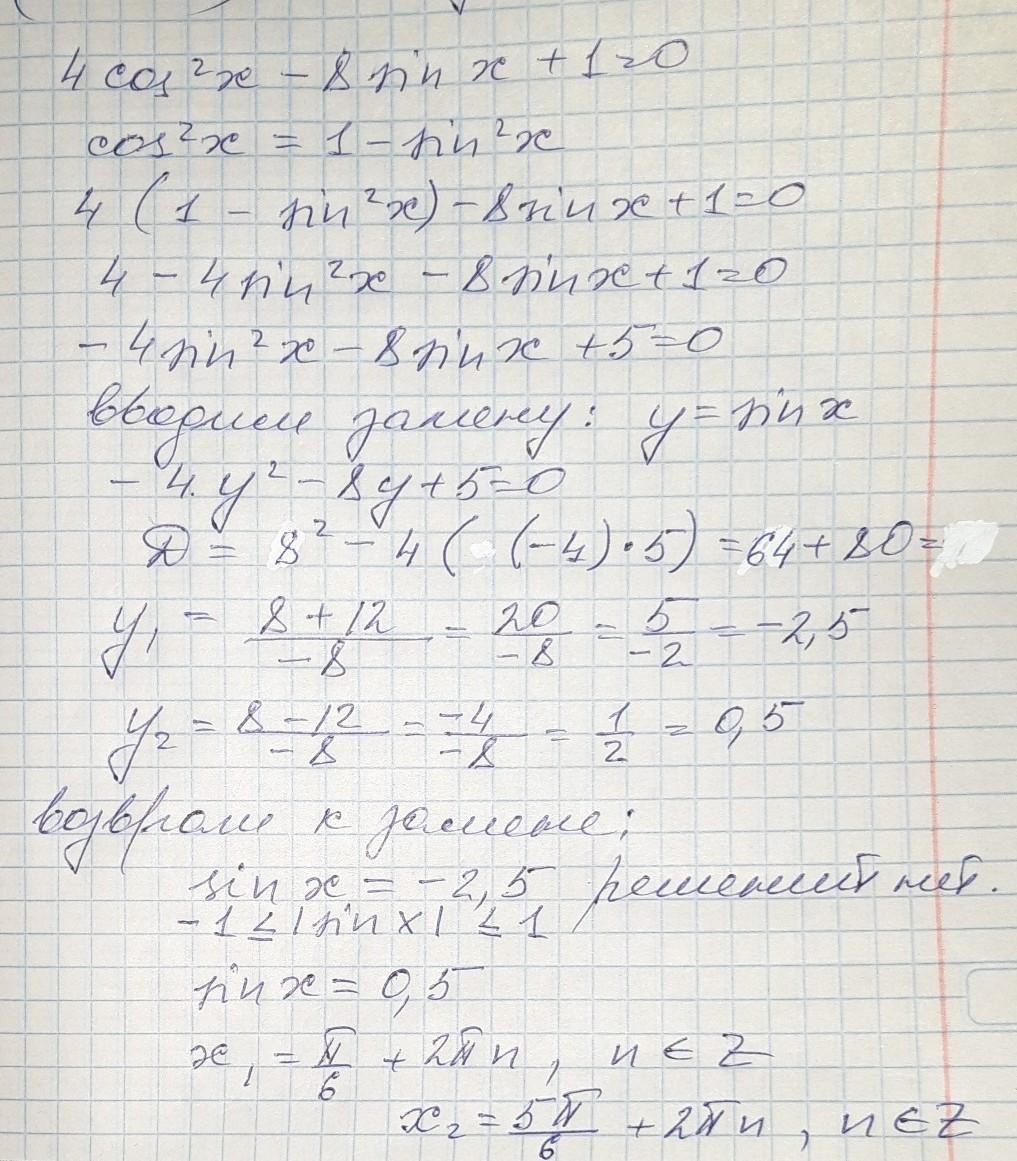 4 cos²x − 8 sin x + 1 = 0
cos²x = 1 − sin²x
4 (1 − sin²x) − 8 sin x + 1 = 0
4 − 4 sin²x − 8 sin x + 1 = 0
− 4 sin²x − 8 sin x + 5 = 0
вводим замену: y = sin x
− 4·y² − 8y + 5 = 0
D = 8² − 4 ( (−4)·5) = 64 + 80 =
y₁ = (8 + 12)/(−8) = 20/(−8) = 5/(−2) = −2,5
y₂ = (8 − 12)/(−8) = (−4)/(−8) = 1/2 = 0,5
к замене:
sin x = −2,5 решений нет.
−1 ≤ |sin x| ≤ 1
sin x = 0,5
x₁ = π/6 + 2πn, n ∈ Z
x₂ = 5π/6 + 2πn, n ∈ Z